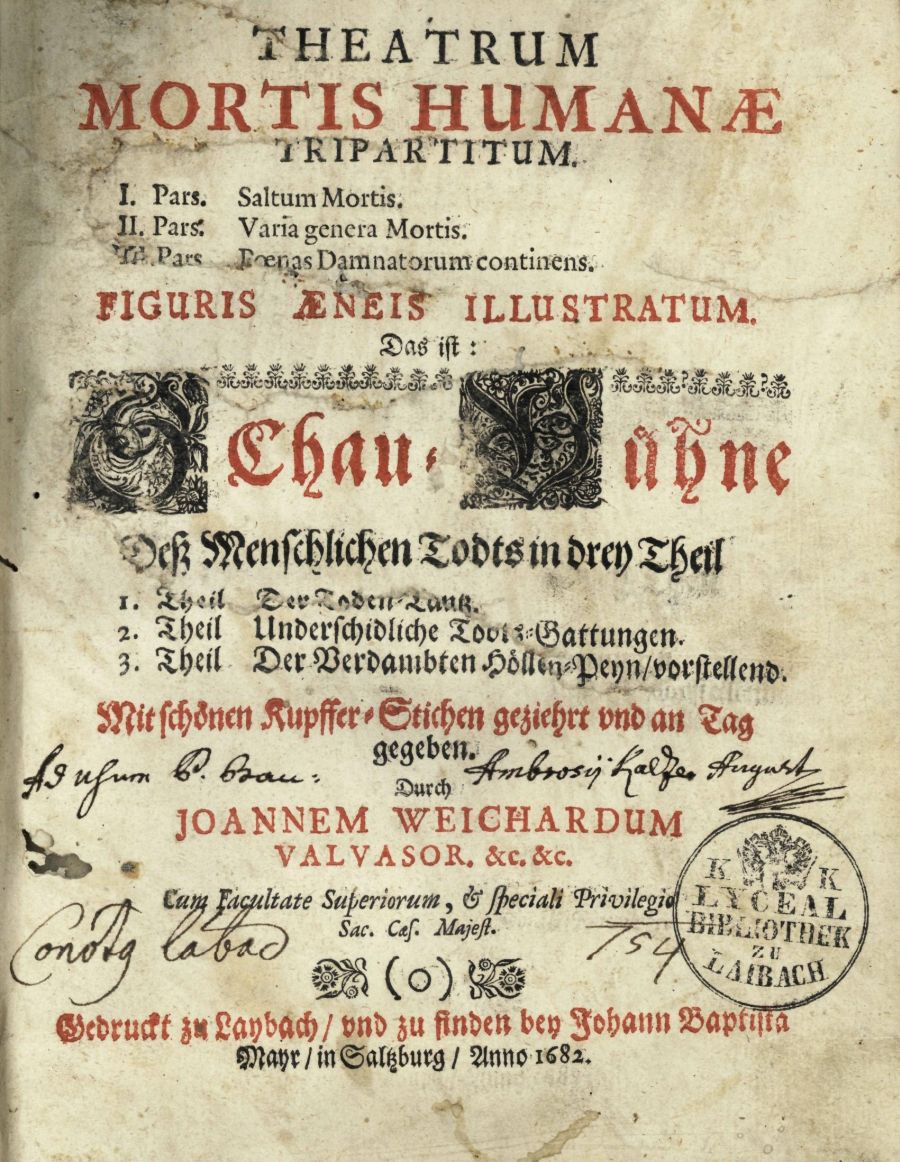 THEATRUM
MORTIS HUMANÆ
TRIPARTITUM.
I. Pars. Saltum Mortis.
II. Pars. Varia genera Mortis.
III. Pars Pœnas Damnatorum continens.
FIGURIS ÆNEIS ILLUSTRATUM.
Das ist:
SChau-Bühne
Deß Menschlichen Todts in drey Theil
1. Theil Der Todten-Tantz.
2. Theil Underschidliche Todts-Gattungen.
3. Theil Der Verdambten Höllen-Peyn/vorstellend.
Mit schönen Kupffer-Stichen geziehrt vnd an Tag
gegeben.
Ad usum P. Ambrosij August
Durch
JOANNEM WEICHARDUM
VALVASOR. &c. &c.
Cum Facultate Superiorum, & speciali Privilegio
Sac. Cæs. Majest.
154
K K
LYCEAL
BIBLIOTHEK
ZU
LAIBACH
(o)
Gedruckt zu Laybach/ vnd zu finden bey Johann Baptista
Mayr/ in Saltzburg/ Anno 1682.